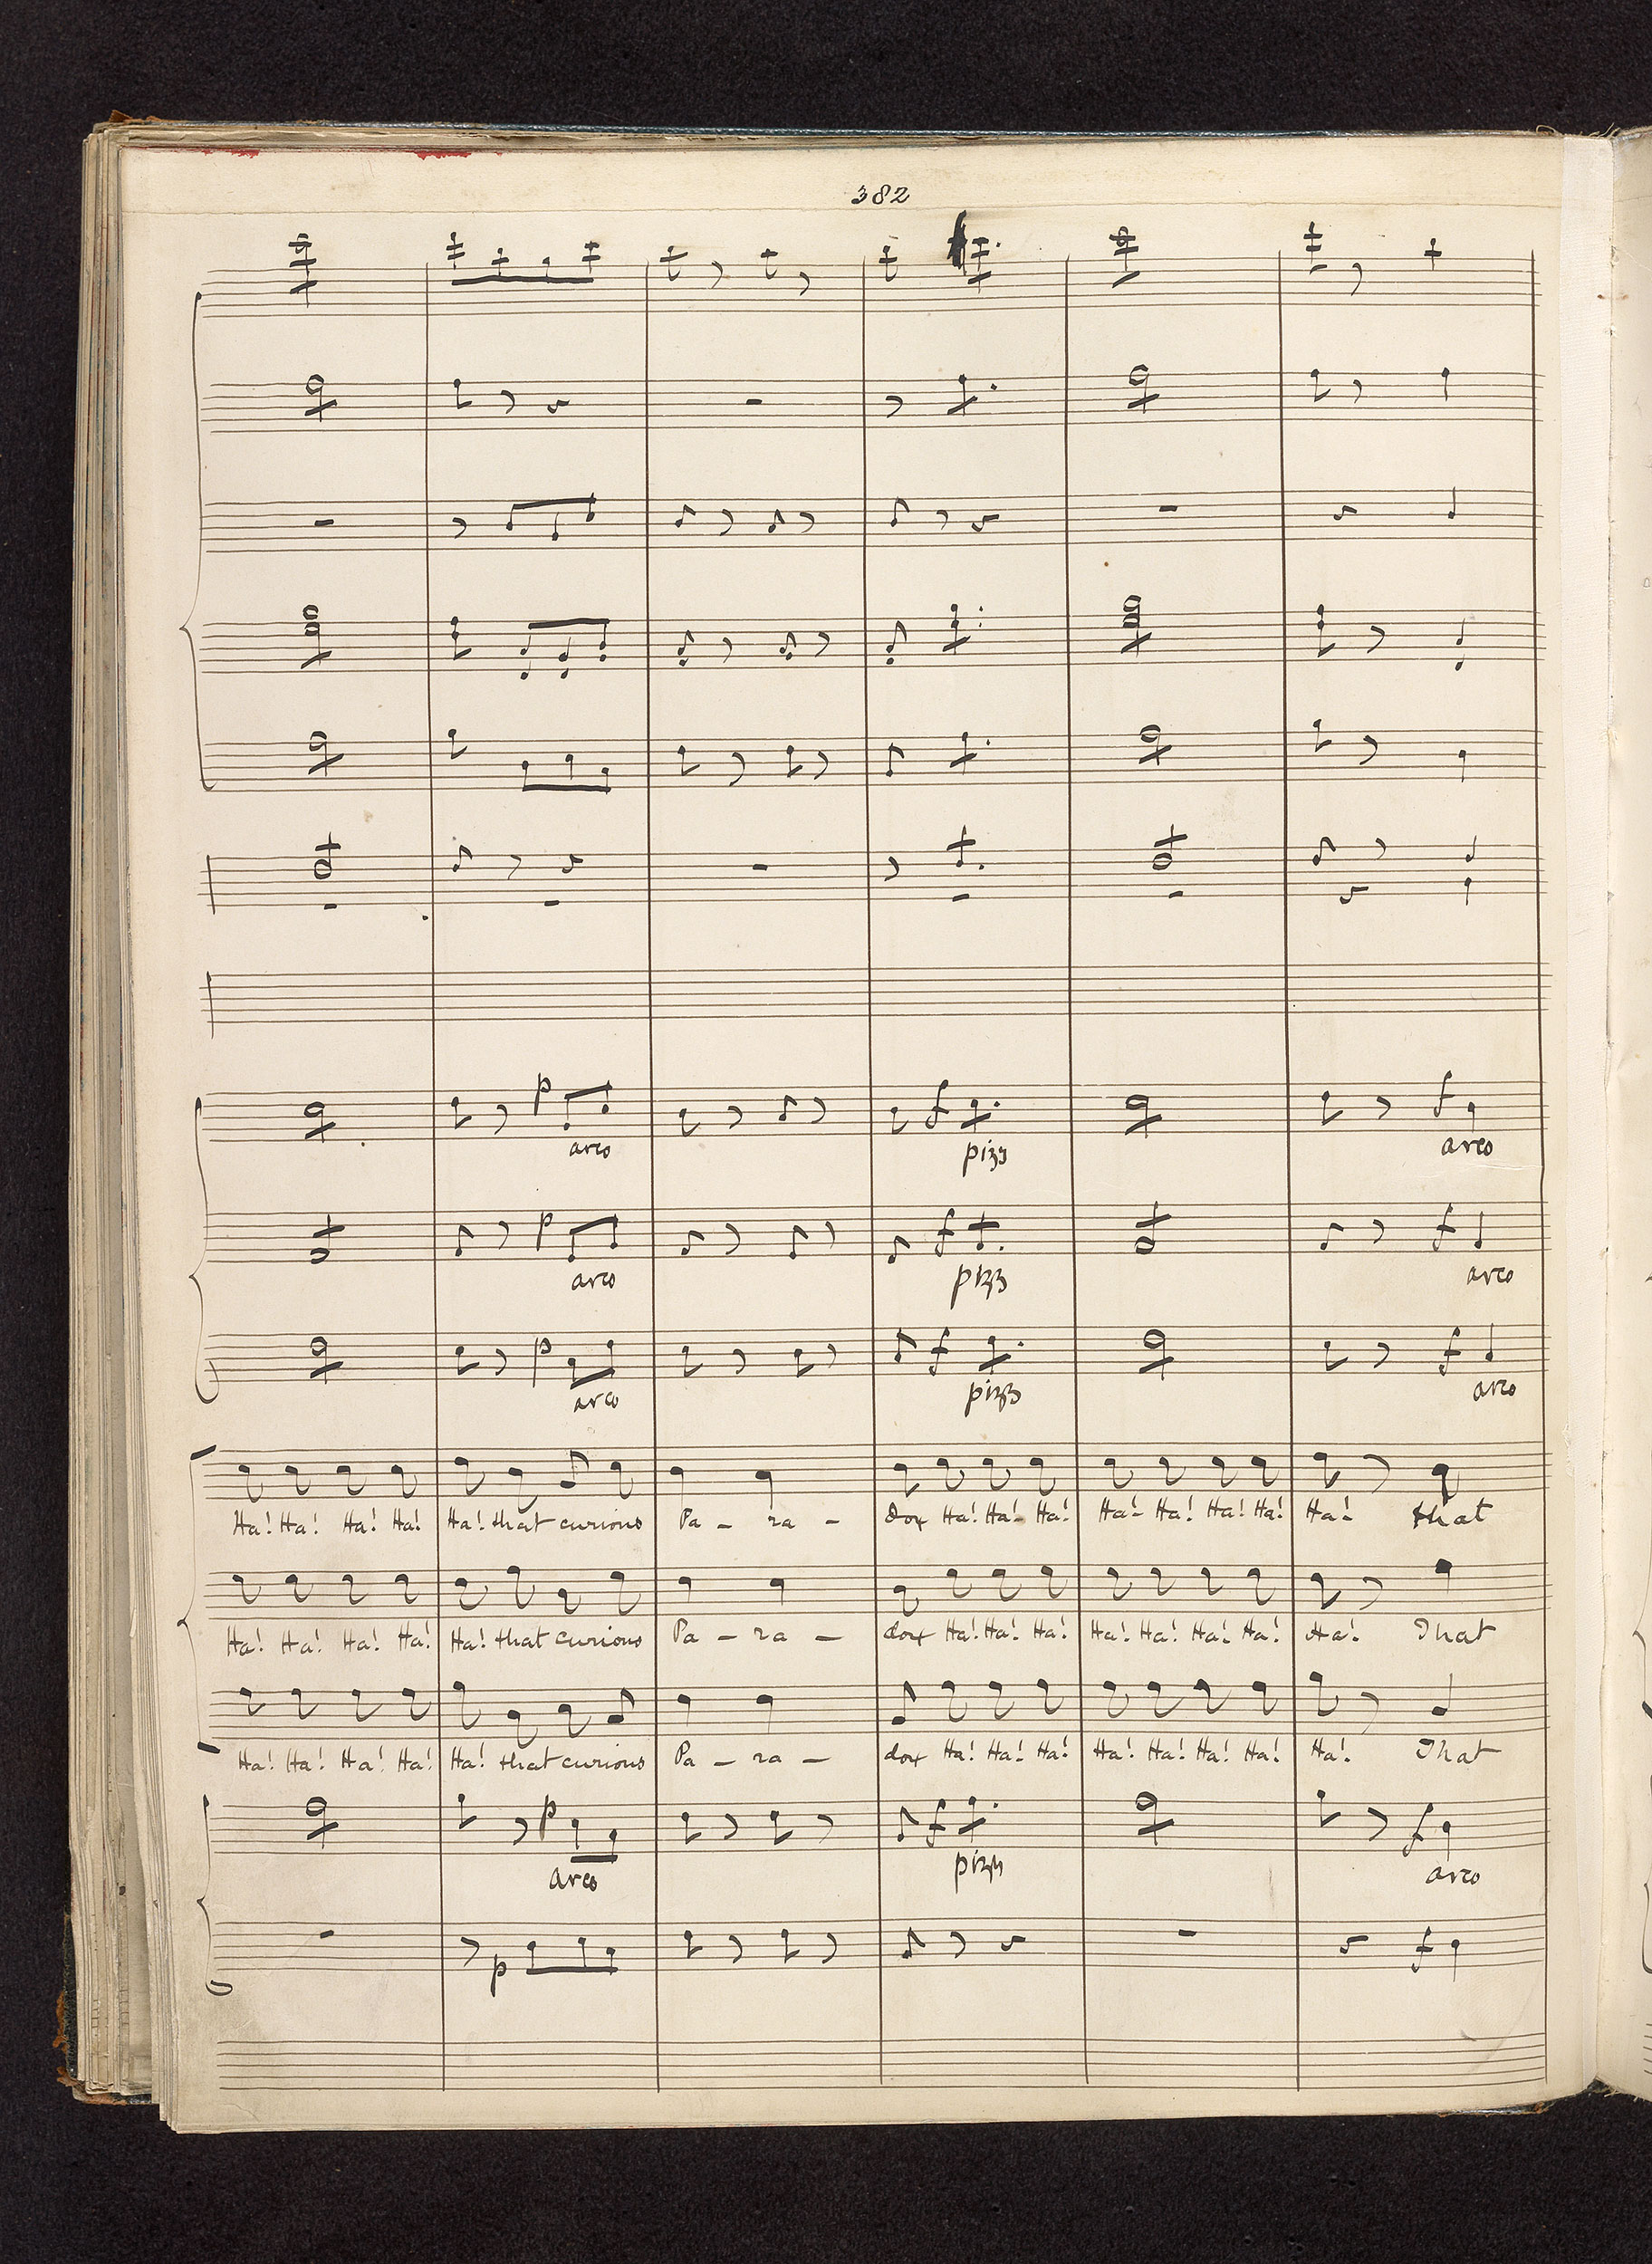 382
p
arco
f
pizz
f
arco
p
arco
f
pizz
f
arco
p
arco
f
pizz
f
arco
Ha! Ha! Ha! Ha! Ha! that curious Pa - ra - dox Ha! Ha! Ha! Ha! Ha! Ha! Ha! Ha! that
Ha! Ha! Ha! Ha! Ha! that curious Pa - ra - dox Ha! Ha! Ha! Ha! Ha! Ha! Ha! Ha! That
Ha! Ha! Ha! Ha! Ha! that curious Pa - ra - dox Ha! Ha! Ha! Ha! Ha! Ha! Ha! Ha! That
p
arco
f
pizz
f
arco
p
f